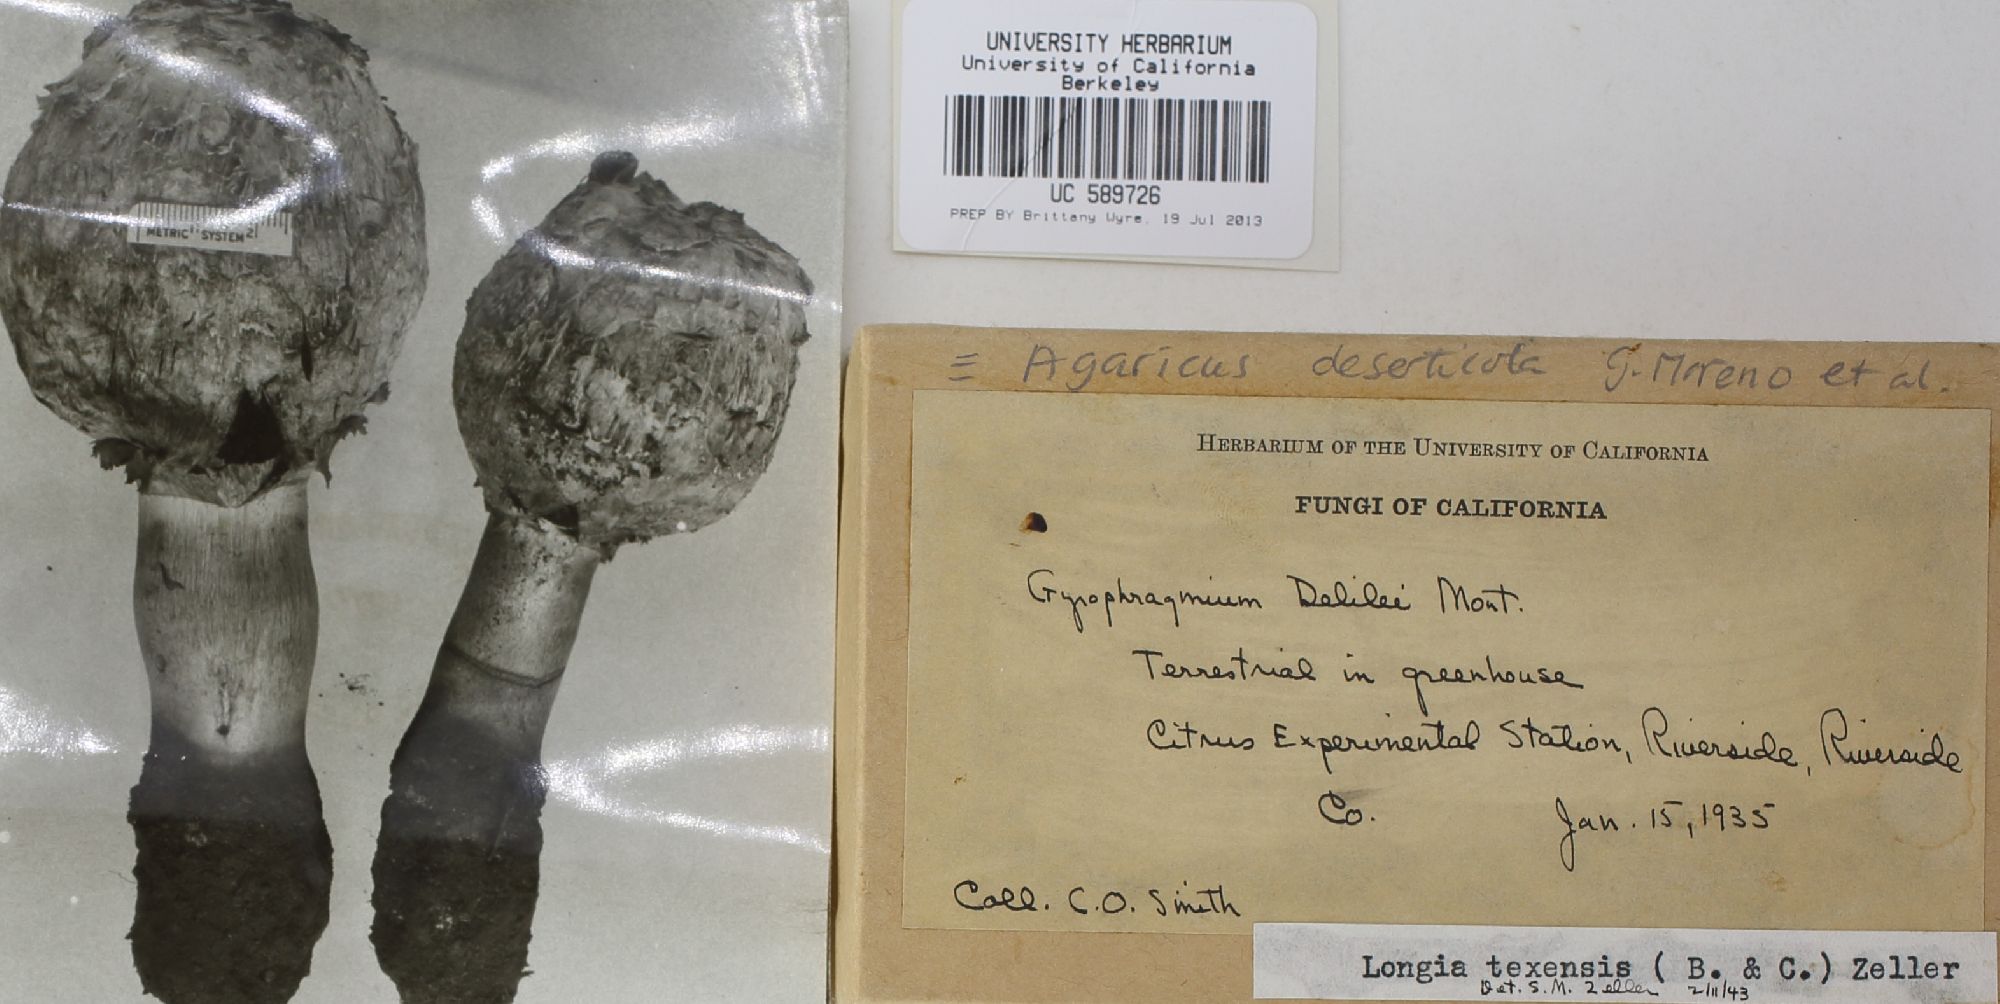 METRIC 1 SYSTEM 2
UNIVERSITY HERBARIUM
University of California
Berkeley
UC 589726
PREP BY Brittany Wyre, 19 Jul 2013
= Agaricus deserticola G. Moreno et al.
HERBARIUM OF THE UNIVERSITY OF CALIFORNIA
FUNGI OF CALIFORNIA
Gyrophragmium Delilei Mont.
Terrestrial in greenhouse
Citrus Experimental Station, Riverside, Riverside
Co. Jan. 15, 1935
Coll. C.O. Smith
Longia texensis ( B. & C.) Zeller
Det. S.M. Zeller 2/11/43